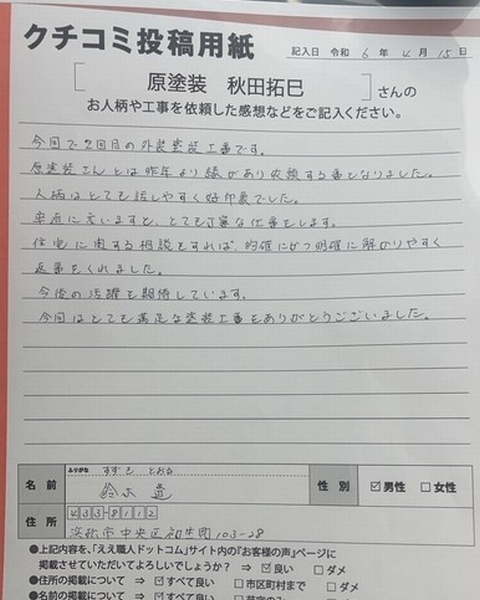 クチコミ投稿用紙
記入日 令和 6 年 4 月 15 日
原塗装 秋田拓巳 さんの
お人柄や工事を依頼した感想などをご記入ください。
今回で2回目の外装塗装工事です。
原塗装さんとは昨年より縁があり依頼する事となりました。
人柄はとても話しやすく好印象でした。
率直に言いますと、とても丁寧な仕事をします。
住宅に関する相談をすれば、的確にかつ明確に解かりやすく
返事をくれました。
今後の活躍を期待しています。
今回はとても満足な塗装工事をありがとうございました。
ふりがな すずき とおる
名前 鈴木 性別 ☑男性 □女性
433-8112
住所 浜松市中央区初生町103-28
●上記内容を、「ええ職人ドットコム」サイト内の『お客様の声』ページに
掲載させていただいてよろしいでしょうか? ⇒ ☑良い □ダメ
●住所の掲載について ⇒ ☑すべて良い □市区町村まで □ダメ
●名前の掲載について ⇒ ☑すべて良い